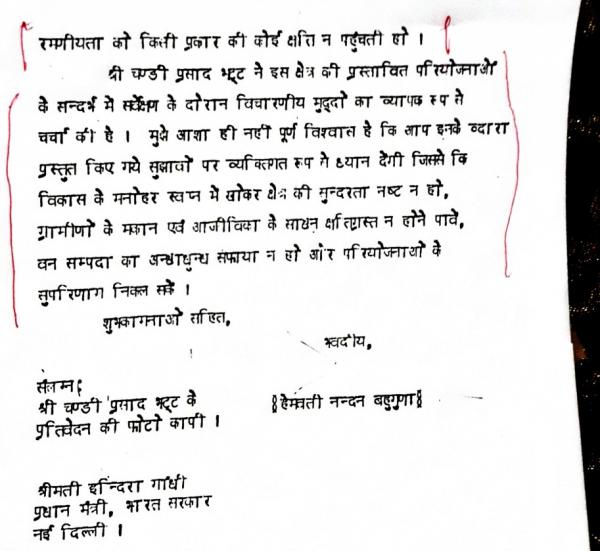 रमणीयता को किसी प्रकार की कोई क्षति न पहुंचती हो ।
श्री चण्डी प्रसाद भट्ट ने इस क्षेत्र की प्रस्तावित परियोजनाओं
के सन्दर्भ में सर्वेक्षण के दौरान विचारणीय मुद्दों का व्यापक रूप से
चर्चा की है । मुझे आशा ही नहीं पूर्ण विश्वास है कि आप इनके व्दारा
प्रस्तुत किए गये सुझावों पर व्यक्तिगत रूप से ध्यान देंगी जिससे कि
विकास के मनोहर स्वप्न में खोकर क्षेत्र की सुन्दरता नष्ट न हो,
ग्रामीणों के मकान एवं आजीविका के साधन क्षतिग्रस्त न होने पावें,
वन सम्पदा का अन्धाधुन्ध सफाया न हो और परियोजनाओं के
सुपरिणाम निकल सकें ।
शुभकामनाओं सहित,
भवदीय,
संलग्न:
श्री चण्डी प्रसाद भट्ट के
प्रतिवेदन की फोटो कापी ।
§हेमवती नन्दन बहुगुणा§
श्रीमती इन्दिरा गांधी
प्रधान मंत्री, भारत सरकार
नई दिल्ली ।